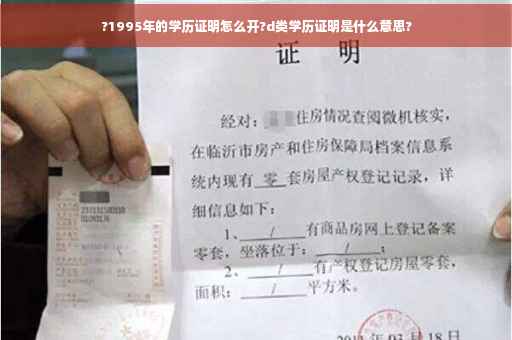 ?1995年的学历证明怎么开?d类学历证明是什么意思?
证 明
经对：住房情况查阅微机核实，
在临沂市房产和住房保障局档案信息系
统内现有 零 套房屋产权登记记录，详
细信息如下：
1、 / 有商品房网上登记备案
零套，坐落位于： / ；
2、 / 有产权登记房屋零套，
面积： / 平方米。
03月18日